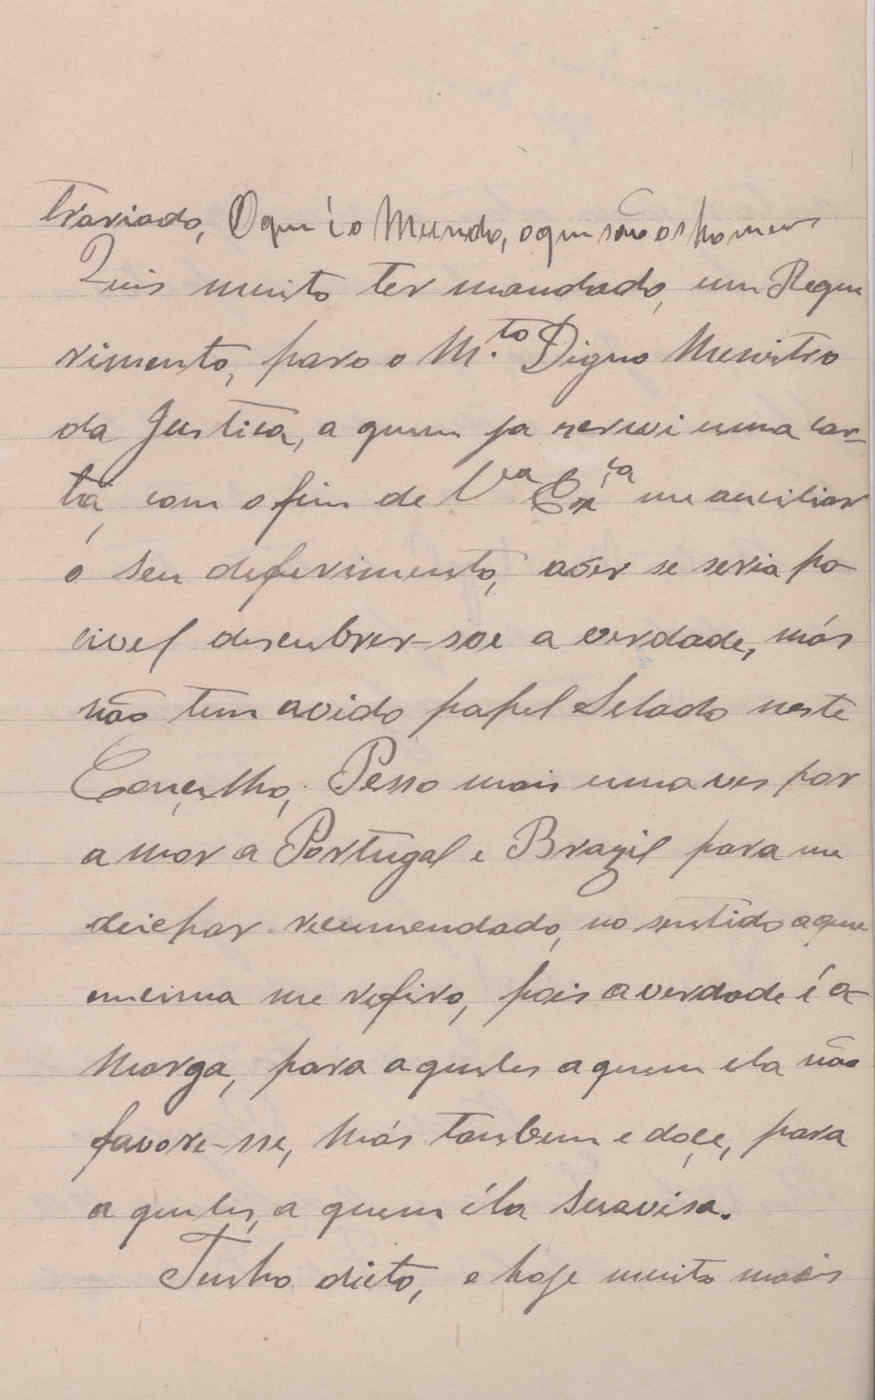 trariado, O que é o Mundo, o que são os homens
Quis muito ter mandado, um Reque
rimento, para o M.to Digno Menistro
da Justica, a quem ja screvi uma car-
ta, com o fim de Va Excia me auciliar
o seu deferimento, aver se seria po
civel descubrer-sse a verdade, más
não tem avido papel Selado neste
Conçelho; Pesso mais uma ves por
a mor a Portugal e Brazil para me
deichar recumendado, no sentido aque
emcima me refiro, pois a verdade é a-
Marga, para aqueles aquem ela não
favore-sse, Más tambem e doçe, para
aqueles, a quem éla Suavisa.
Tenho dicto, e hoje muito mais